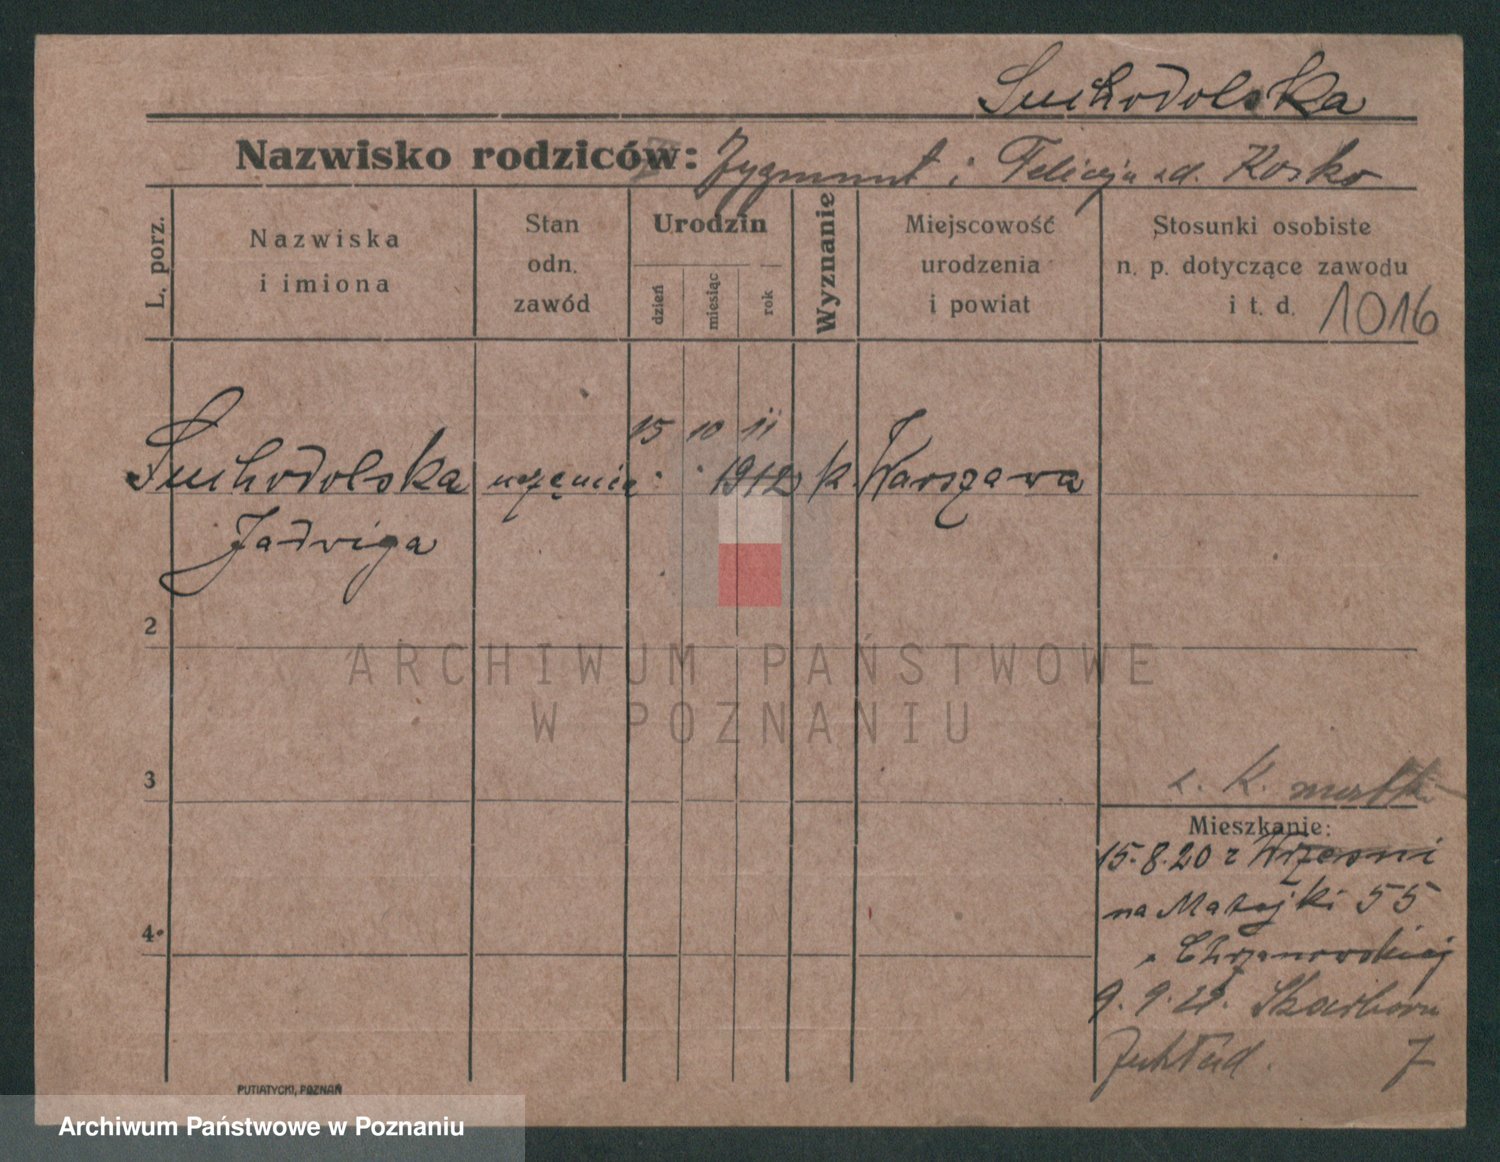 Suchodolska
Nazwisko rodziców: Zygmunt i Felicja zd. Kosko
L. porz.
Nazwiska
i imiona
Stan
odn.
zawód
Urodzin
dzień
miesiąc
rok
Wyznanie
Miejscowość
urodzenia
i powiat
Stosunki osobiste
n. p. dotyczące zawodu
i t. d. 1016
15 10 11
Suchodolska uczenica 1912 k Warszawa
Jadwiga
2
ARCHIWUM PAŃSTWOWE
W POZNANIU
3
z. K. matki
Mieszkanie:
15.8.20 z Wrzesni
na Matejki 55
Chrzanowskiej
4
9. 9. 21. Skarbowa
7
PUTIATYCKI, POZNAŃ
Archiwum Państwowe w Poznaniu